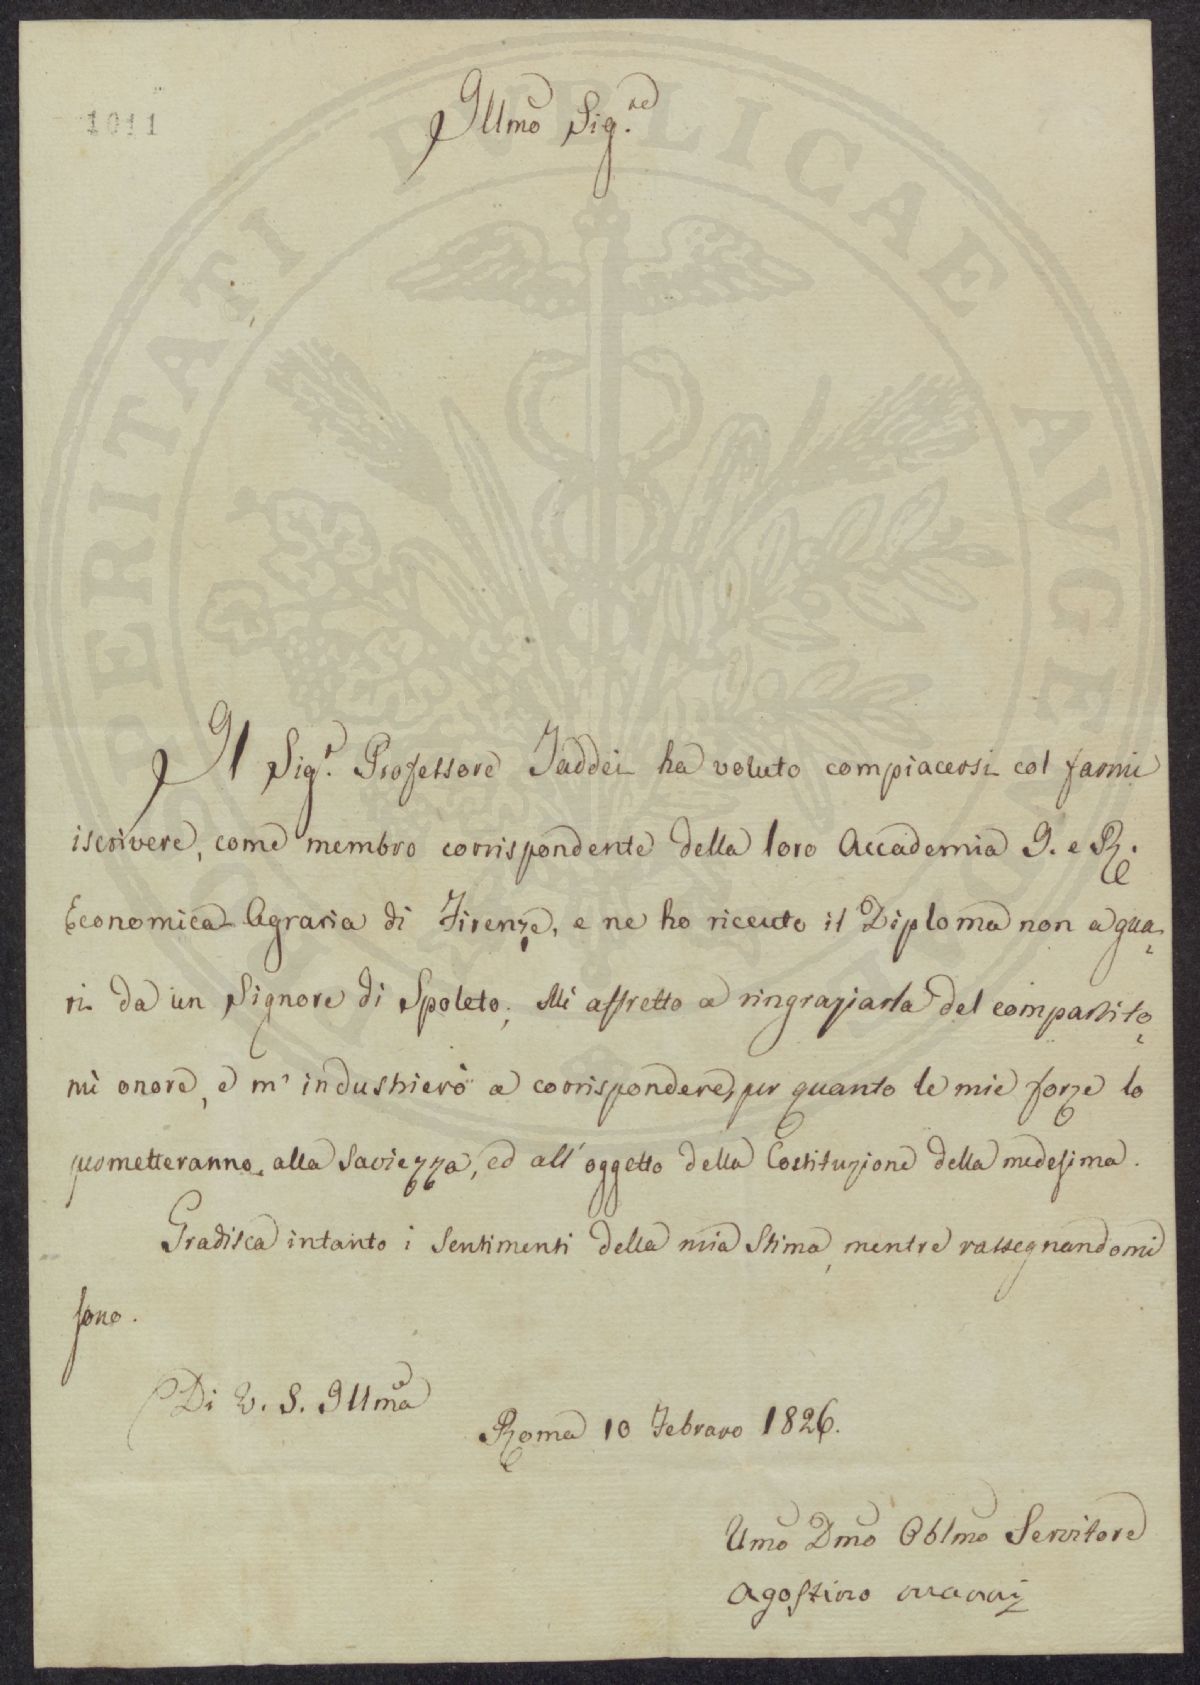 1011
Illmo Sig.re
Il Sig.r Professore Taddei ha voluto compiacersi col farmi
iscrivere, come membro corrispondente della loro Accademia I. e R.
Economica Agraria di Firenze, e ne ho riceuto il Diploma non a gua-
ri da un Signore di Spoleto; Mi affretto a ringraziarla del compartito-
mi onore, e m' industrierò a corrispondere, per quanto le mie forze lo
prometteranno, alla saviezza, ed all' oggetto della Costituzione della medesima.
Gradisca intanto i sentimenti della mia stima, mentre rassegnandomi
sono.
Di V. S. Illma
Roma 10 Febraro 1826.
Umo Dmo Oblmo Servitore
Agostino
PROSPERITATI PVBLICAE AVGENDAE